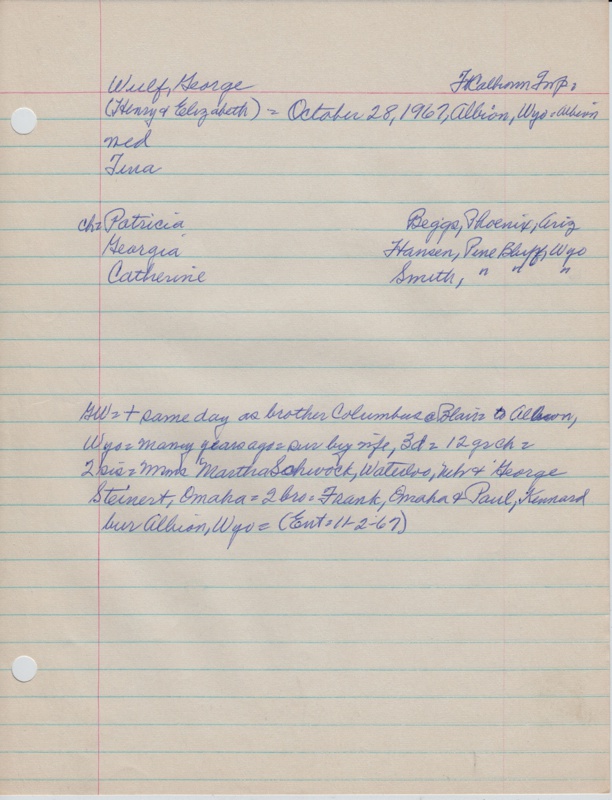 Wulf, George Ft Calhoun Twp =
(Henry & Elizabeth) = October 28, 1967, Albion, Wyo = Albion
med
Tena
ch = Patricia Beggs, Phoenix, Ariz
Georgia Hansen, Pine Bluff, Wyo
Catherine Smith, " " "
GW = + same day as brother Columbus @ Blair = to Albion,
Wyo = many years ago = sur by wife, 3d = 12 grch =
2 sis = Mmes Martha Schwock, Waterloo, Neb & George
Steinert, Omaha = 2 bro = Frank, Omaha & Paul, Kennard
bur Albion, Wyo = (Ent = 11-2-67)